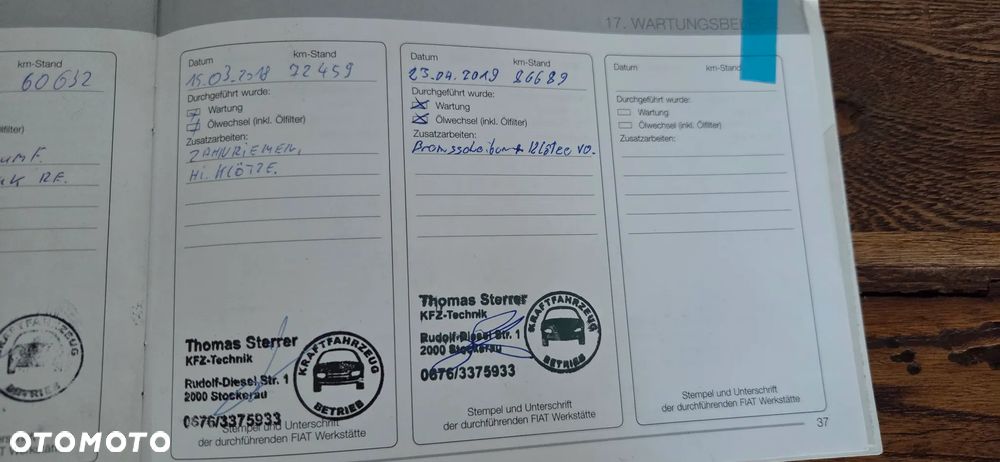 17. WARTUNGSBE
km-Stand
60632
filter)
RE.
KRAFTFAHRZEUG
BETRIEB
Datum km-Stand
15.03.2018 72459
Durchgeführt wurde:
Wartung
Ölwechsel (inkl. Ölfilter)
Zusatzarbeiten:
ZAHNRIEMEN,
HI. KLÖTZE.
Thomas Sterrer
KFZ-Technik
Rudolf-Diesel Str. 1
2000 Stockerau
0676/3375933
KRAFTFAHRZEUG
BETRIEB
Stempel und Unterschrift
der durchführenden FIAT Werkstätte
Datum km-Stand
23.04.2019 86689
Durchgeführt wurde:
Wartung
Ölwechsel (inkl. Ölfilter)
Zusatzarbeiten:
Bremsscheiben + Klötze VO.
Thomas Sterrer
KFZ-Technik
Rudolf-Diesel Str. 1
2000 Stockerau
0676/3375933
KRAFTFAHRZEUG
BETRIEB
Stempel und Unterschrift
der durchführenden FIAT Werkstätte
Datum km-Stand
Durchgeführt wurde:
Wartung
Ölwechsel (inkl. Ölfilter)
Zusatzarbeiten:
Stempel und Unterschrift
der durchführenden FIAT Werkstätte
37
OTOMOTO